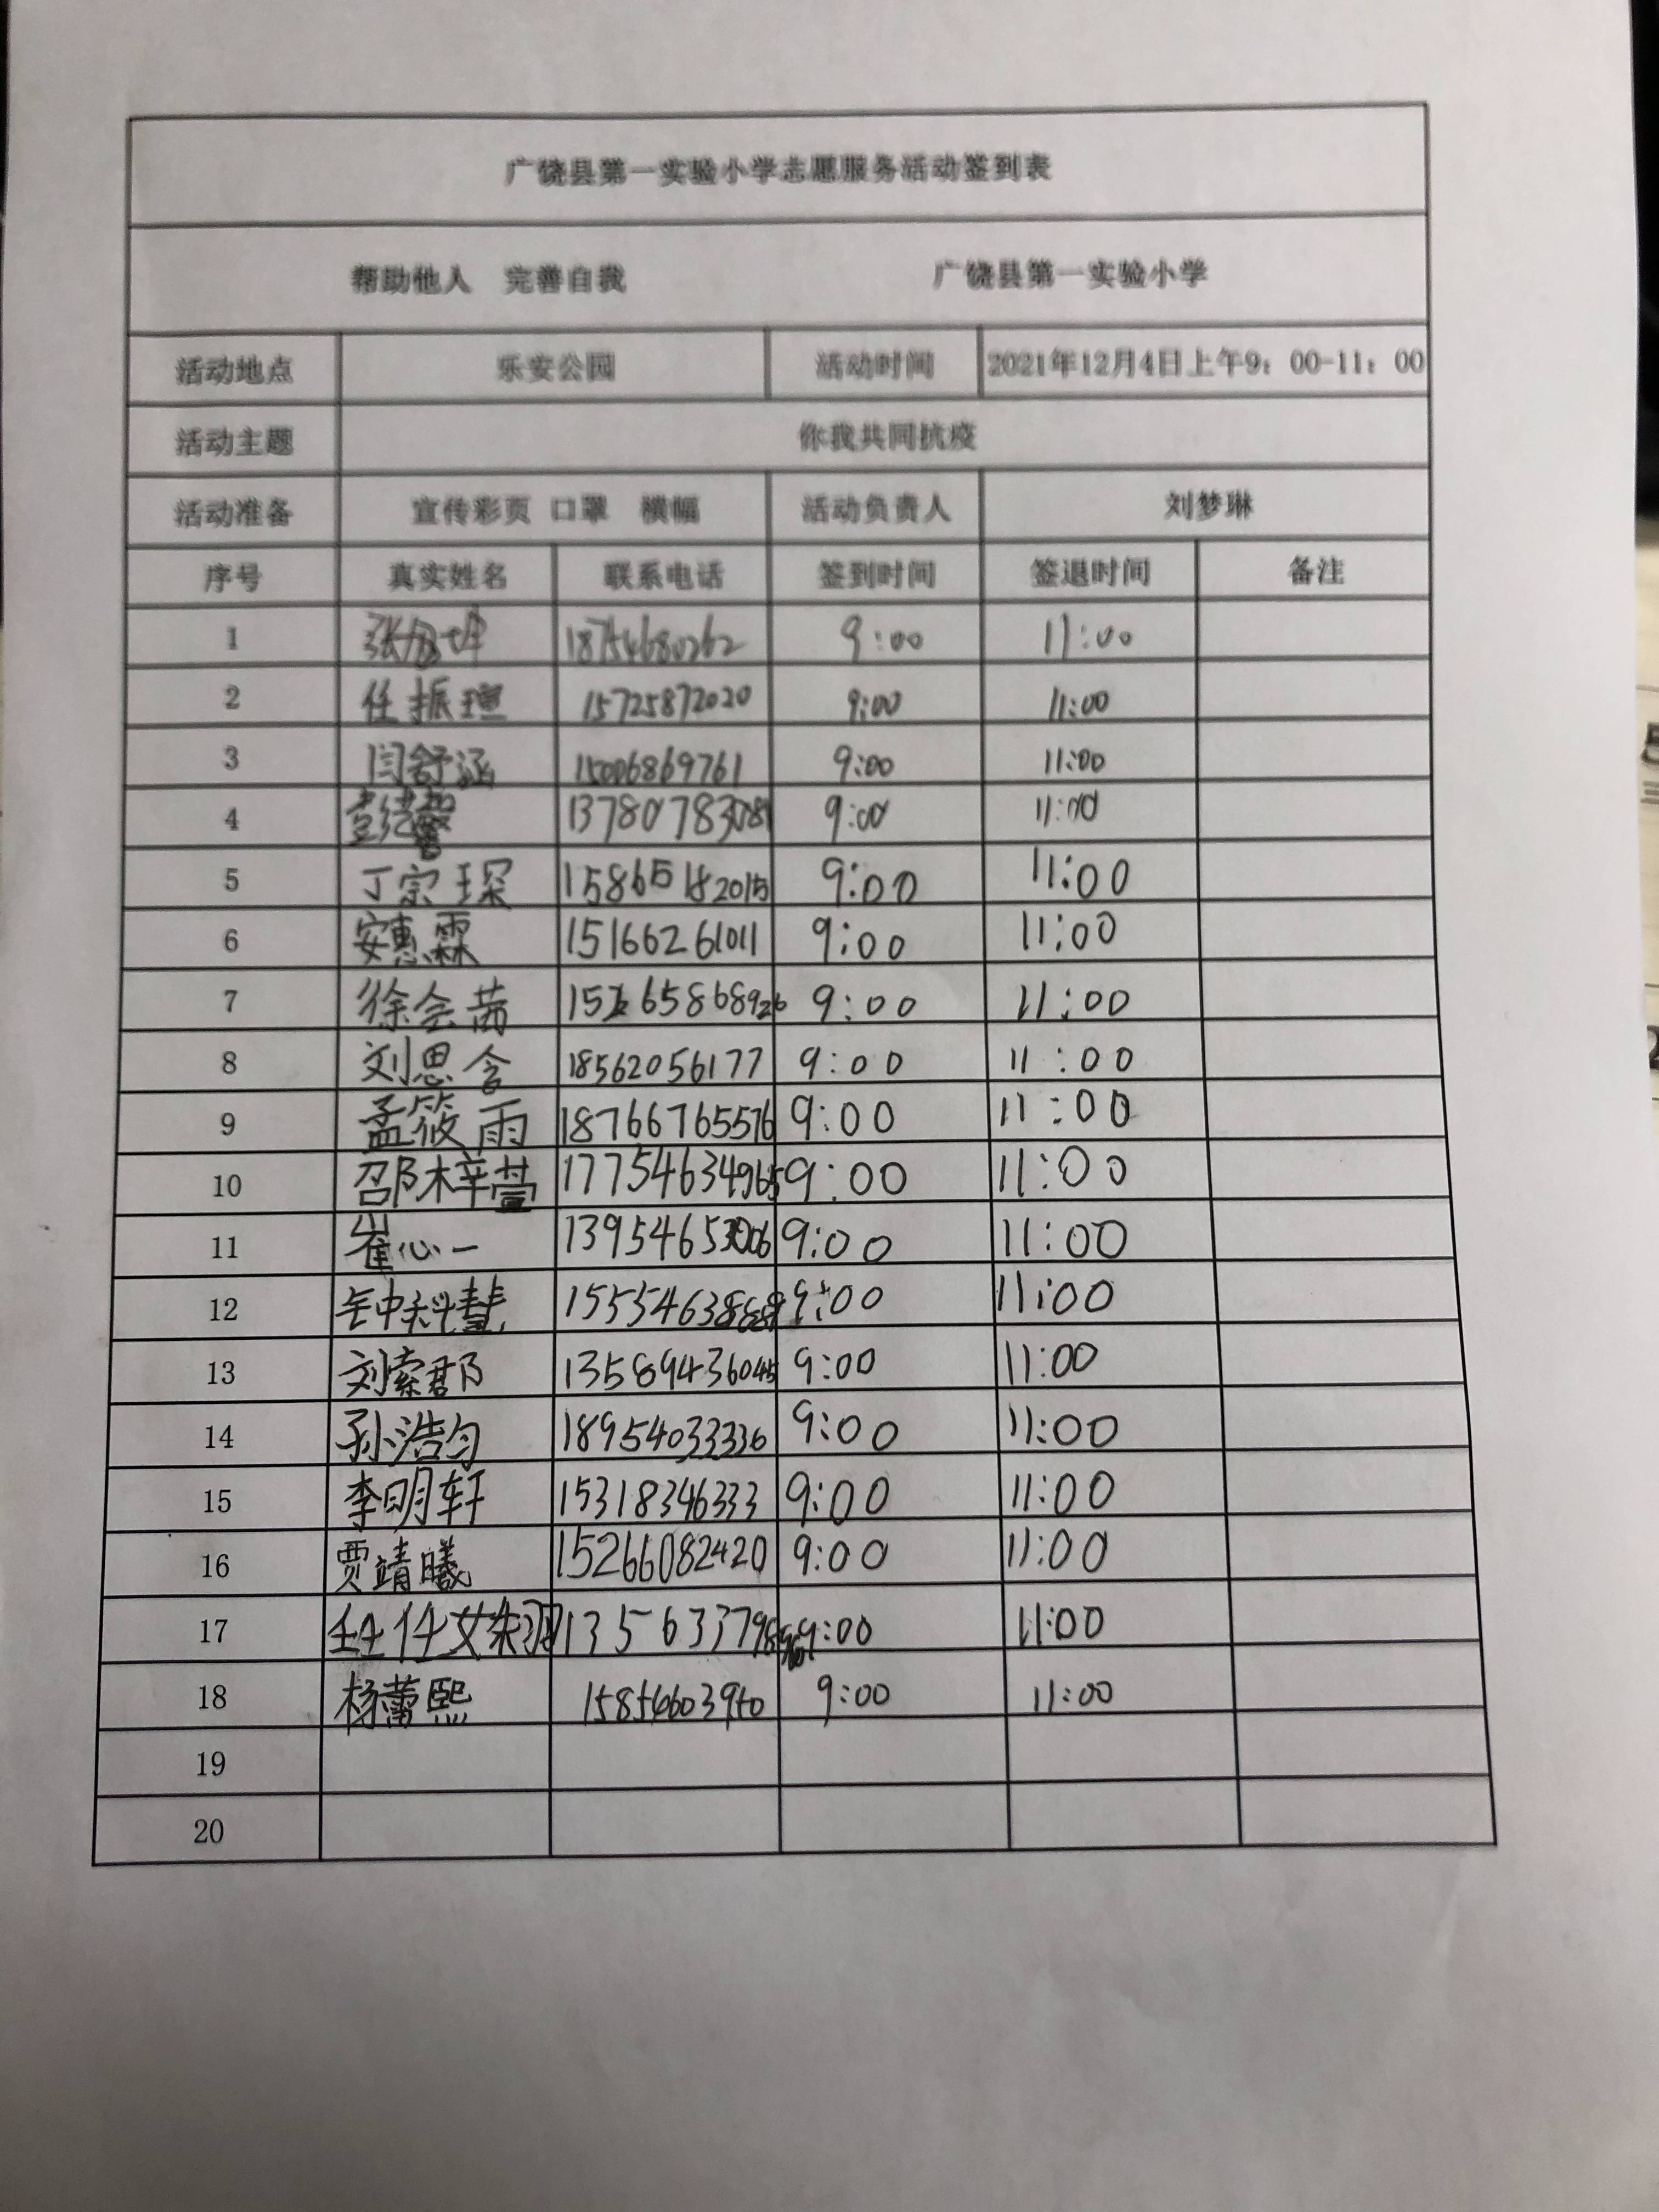 广饶县第一实验小学志愿服务活动签到表
帮助他人 完善自我 广饶县第一实验小学
活动地点 乐安公园 活动时间 2021年12月4日上午9：00-11：00
活动主题 你我共同抗疫
活动准备 宣传彩页 口罩 横幅 活动负责人 刘梦琳
序号 真实姓名 联系电话 签到时间 签退时间 备注
1 18754680262 9:00 11:00
2 任振瑄 15725872020 9:00 11:00
3 闫舒涵 15006869761 9:00 11:00
4 13780783081 9:00 11:00
5 丁宗琛 15865182015 9:00 11:00
6 安惠霖 15166261011 9:00 11:00
7 徐会茜 9:00 11:00
8 刘思含 18562056177 9:00 11:00
9 孟筱雨 18766765576 9:00 11:00
10 邵梓萱 17754634965 9:00 11:00
11 崔心一 13954653006 9:00 11:00
12 9:00 11:00
13 刘索郡 13589436045 9:00 11:00
14 孙浩匀 18954033336 9:00 11:00
15 李明轩 15318346333 9:00 11:00
16 贾靖曦 15266082420 9:00 11:00
17 9:00 11:00
18 杨蕾熙 15854603940 9:00 11:00
19
20